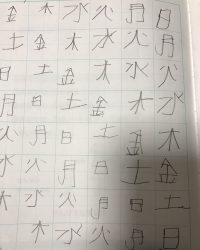 金木水火月日
土金木水火月
日土金木水火
月日土金木水
火月日土金木
水火月日土金
木水火月日土
木水火月日